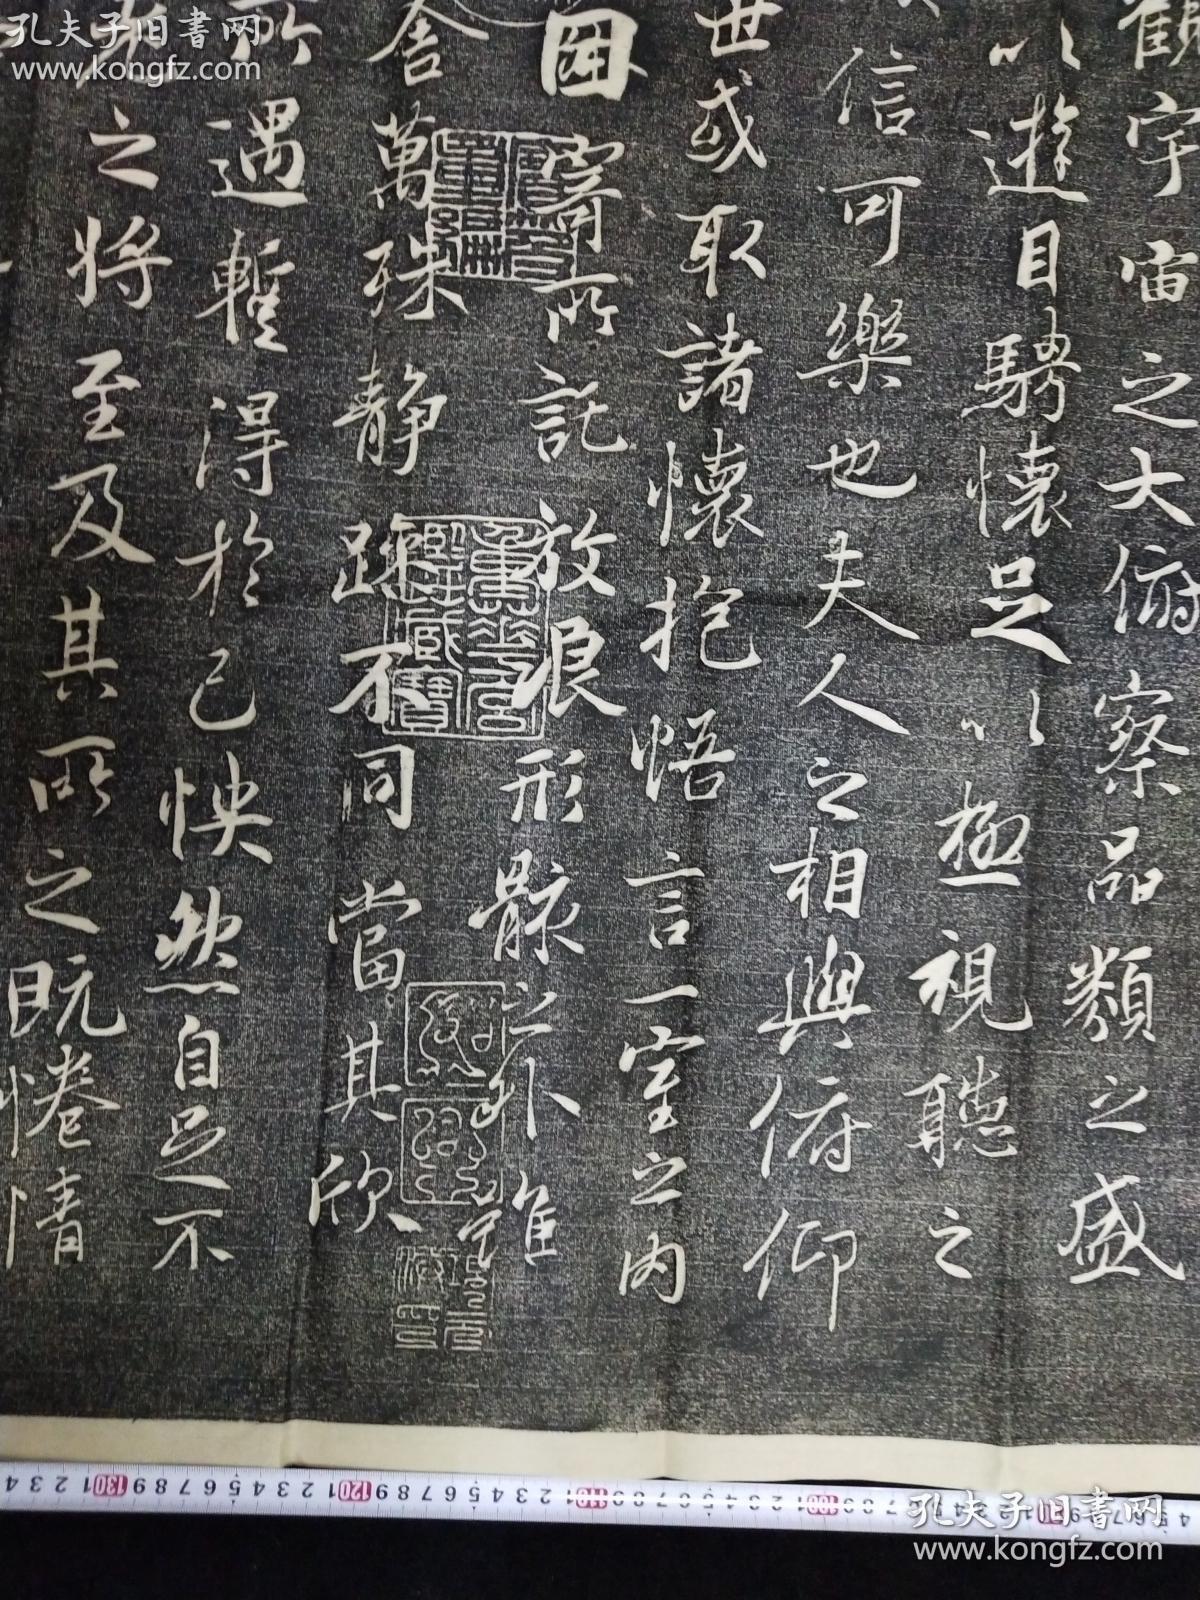 觀宇宙之大俯察品類之盛
以遊目騁懷足以極視聽之
信可樂也夫人之相與俯仰
世或取諸懷抱悟言一室之內
因寄所託放浪形骸之外雖
舍萬殊靜躁不同當其欣
所遇暫得於己怏然自足不
之將至及其所之既惓情
孔夫子旧書网
www.kongfz.com
孔夫子旧書网
www.kongfz.com